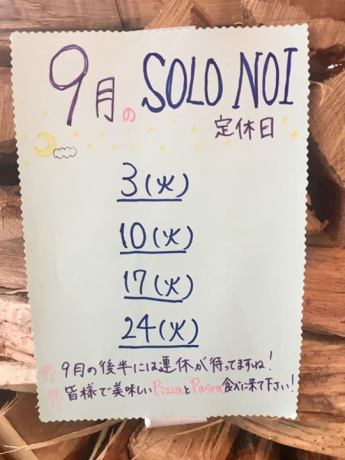 9月の SOLO NOI
定休日
3(火)
10(火)
17(火)
24(火)
9月の後半には連休が待ってますね!
皆様で美味しいPizzaとPasta食べに来て下さい!